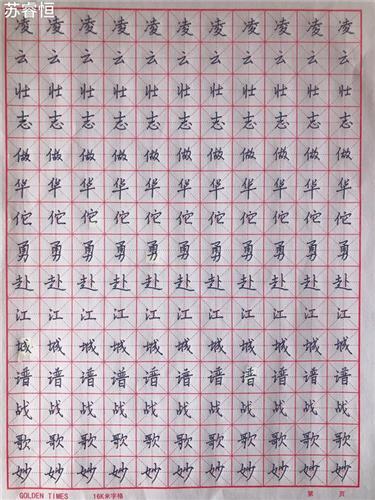 苏睿恒
凌凌凌凌凌凌凌凌凌凌凌
云云云云云云云云云云云
壮壮壮壮壮壮壮壮壮壮壮
志志志志志志志志志志志
做做做做做做做做做做做
华华华华华华华华华华华
佗佗佗佗佗佗佗佗佗佗佗
勇勇勇勇勇勇勇勇勇勇勇
赴赴赴赴赴赴赴赴赴赴赴
江江江江江江江江江江江
城城城城城城城城城城城
谱谱谱谱谱谱谱谱谱谱谱
战战战战战战战战战战战
歌歌歌歌歌歌歌歌歌歌歌
妙妙妙妙妙妙妙妙妙妙妙
GOLDEN TIMES 16K米字格 第 页